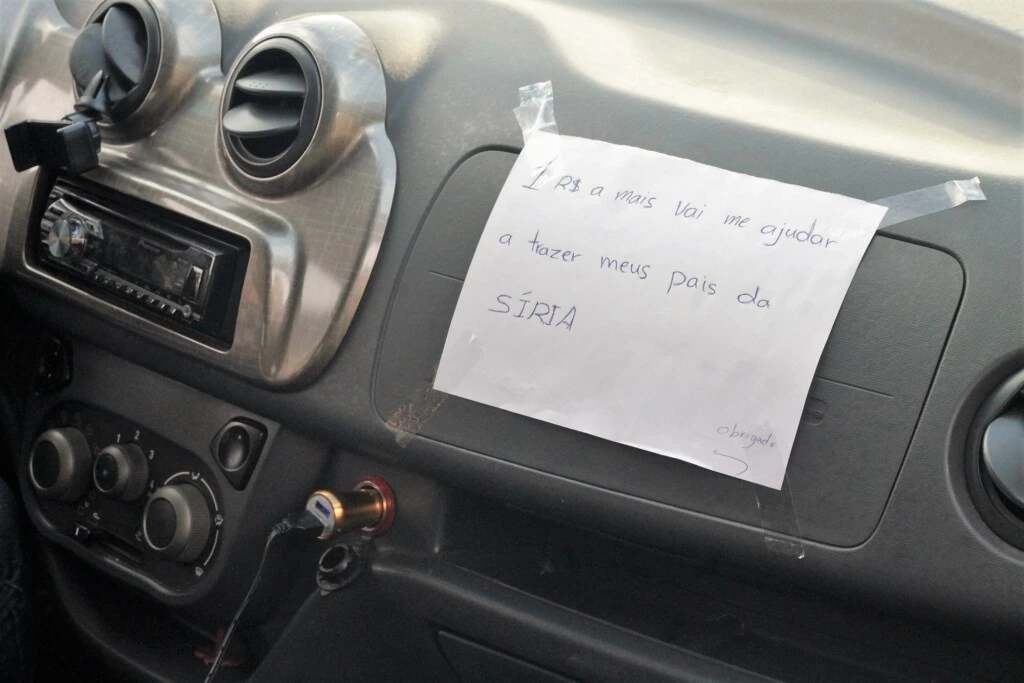 1 R$ a mais vai me ajudar
a trazer meus pais da
SÍRIA
obrigado
1 2
3
4